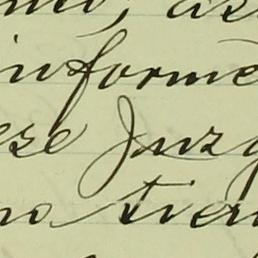 informe
ese Juzg
no tien